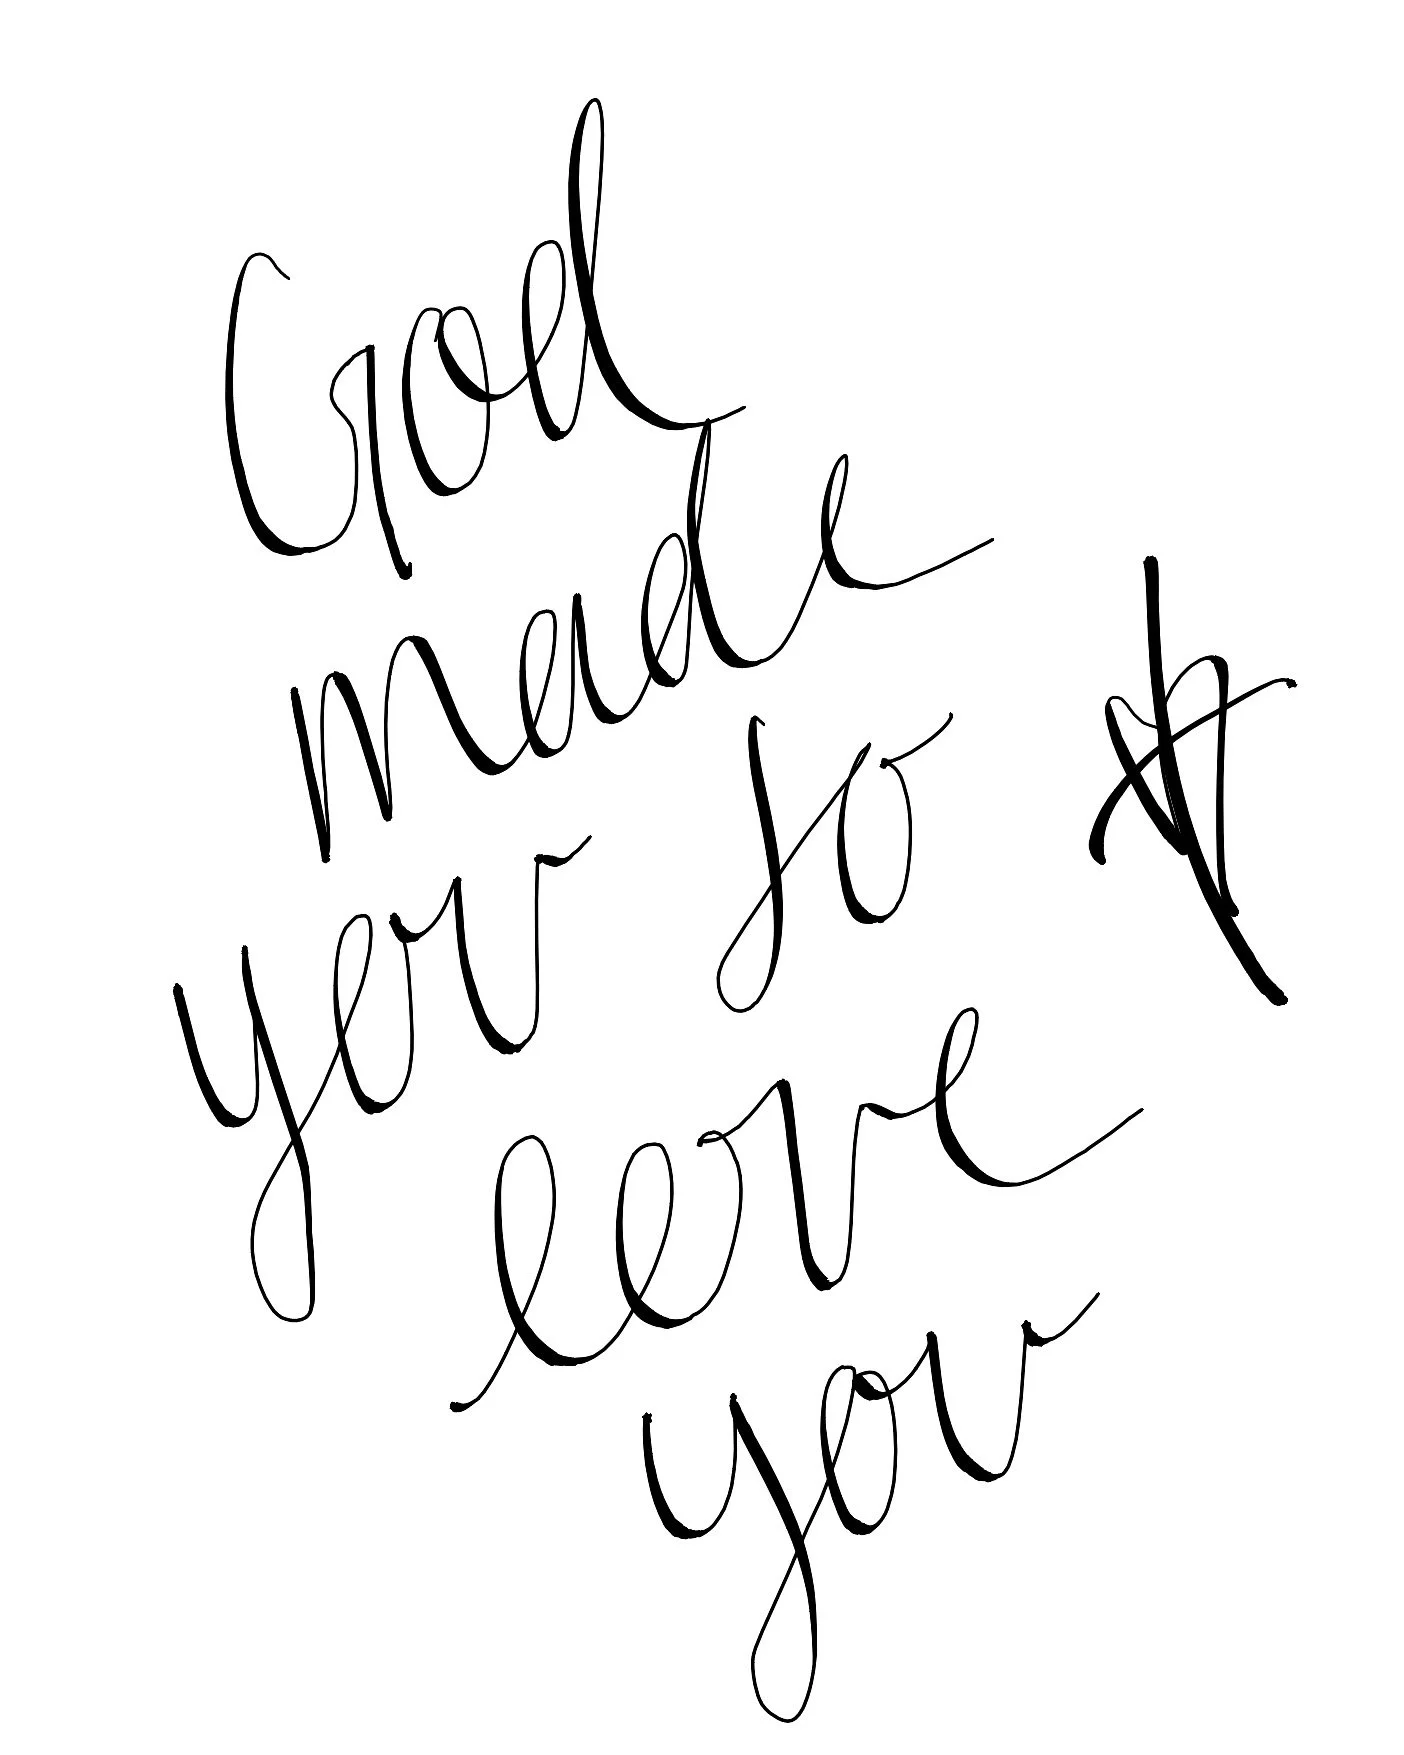 God
made
you so
love
you